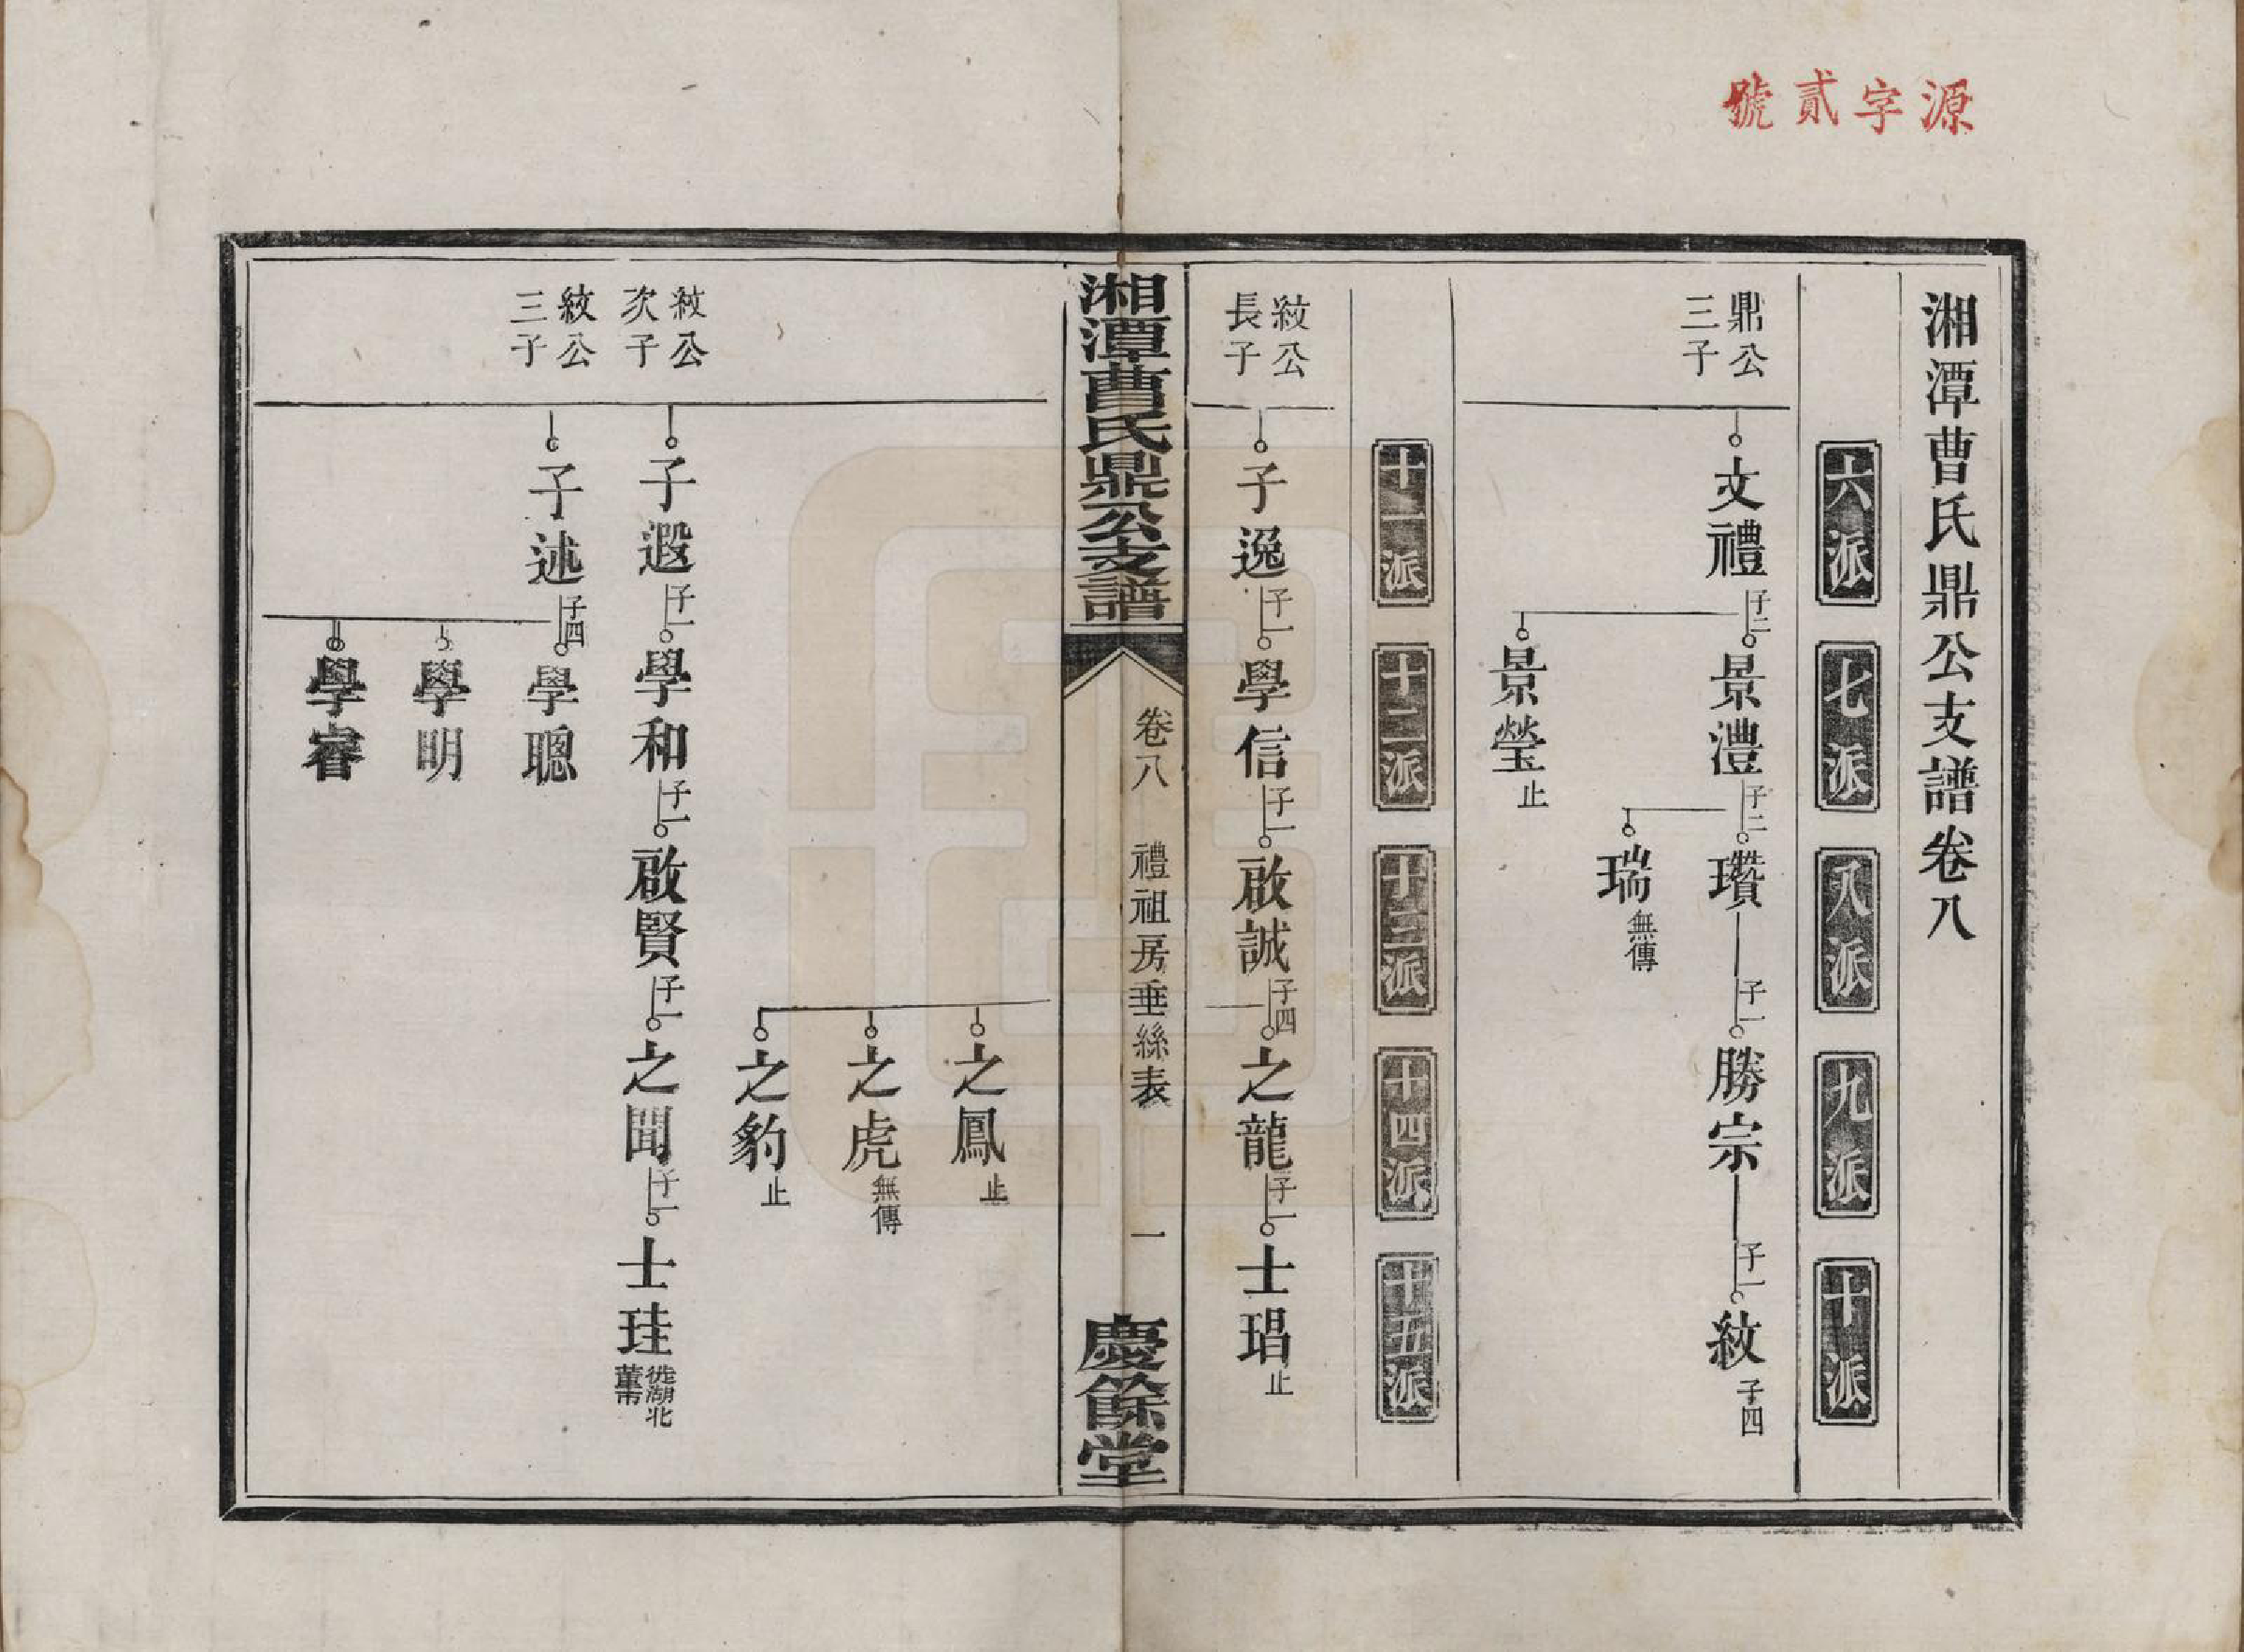 源字貳號
湘潭曹氏鼎公支譜卷八
六派
七派
八派
九派
十派
鼎公
三子
文禮子二
景澧子二
瓚子一
勝宗子一
紋子四
瑞無傳
景瑩止
十一派
十二派
十三派
十四派
十五派
紋公
長子
子逸子一
學信子一
啟誠子四
之龍子一
士琩止
湘潭曹氏鼎公支譜
卷八
禮祖房垂絲表
一
慶餘堂
之鳳止
之虎無傳
之豹止
紋公
次子
子遐子一
學和子一
啟賢子一
之聞子一
士珪徙湖北
董市
紋公
三子
子述子四
學聰
學明
學睿